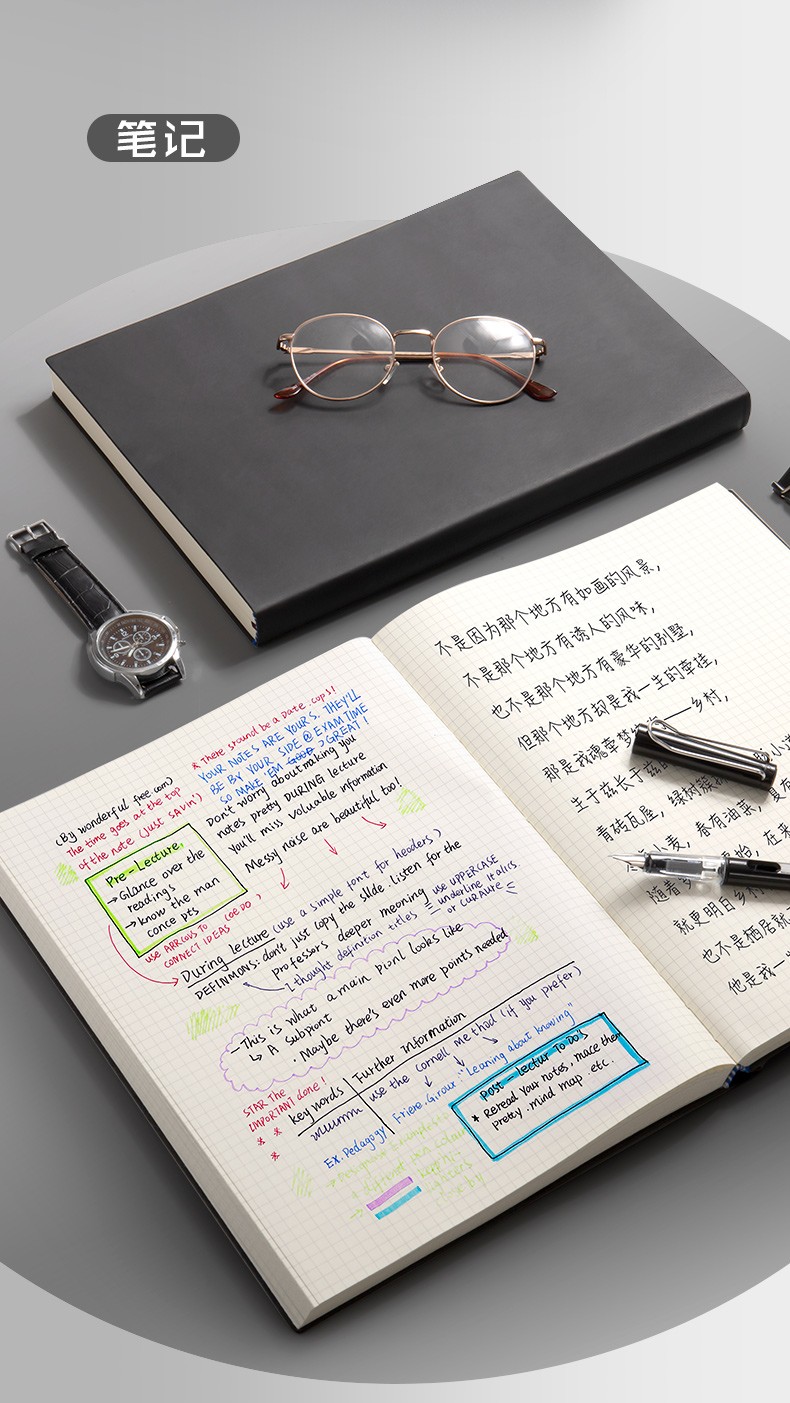 笔记
& There stound be a Date .cops!
YOUR NOTES ARE YOURS. THEY'LL
BE BY YOUR SIDE @ EXAM TIME
SO MAKE 'EM GREAT!
Don't worry about making you
notes pretty DURING lecture
You'll miss voluable information
Messy noise are beautiful too!
(By wonderful free.com)
The time goes at the top
of the note (just SAVin)
Pre-Lecture,
→Glance over the
readings
→know the man
conce pts
USE ARROWS TO (OEDO)
CONNECT IDEAS
During lecture (use a simple font for headers)
DEFINMONS: don't just copy the slide. Listen for the
Professors deeper meoning
I thought definition titles
USE UPPERCASE
underline italics
or CURAURE
-This is what a main Pionl looks like
↳ A Subpiont
. Maybe there's even more points needed
STAR The
IMPORTANT done!
* *
*
key words
Further Information
use the Cornell Method (if you prefer)
EX. Pedagogy
Friere.Giroux: "Leaning about knowing"
Post-Lectur To Do's
* Reread Your notes, mace them
pretty. mind map .etc.
不是因为那个地方有如画的风景，
不是那个地方有诱人的风味，
也不是那个地方有豪华的别墅，
但那个地方却是我一生的牵挂，
那是我魂牵梦 ——乡村，
生于兹长于兹
青砖瓦屋，绿树
小麦，春有油菜，夏有
随着
就更明白乡村
也不是栖居
他是我一